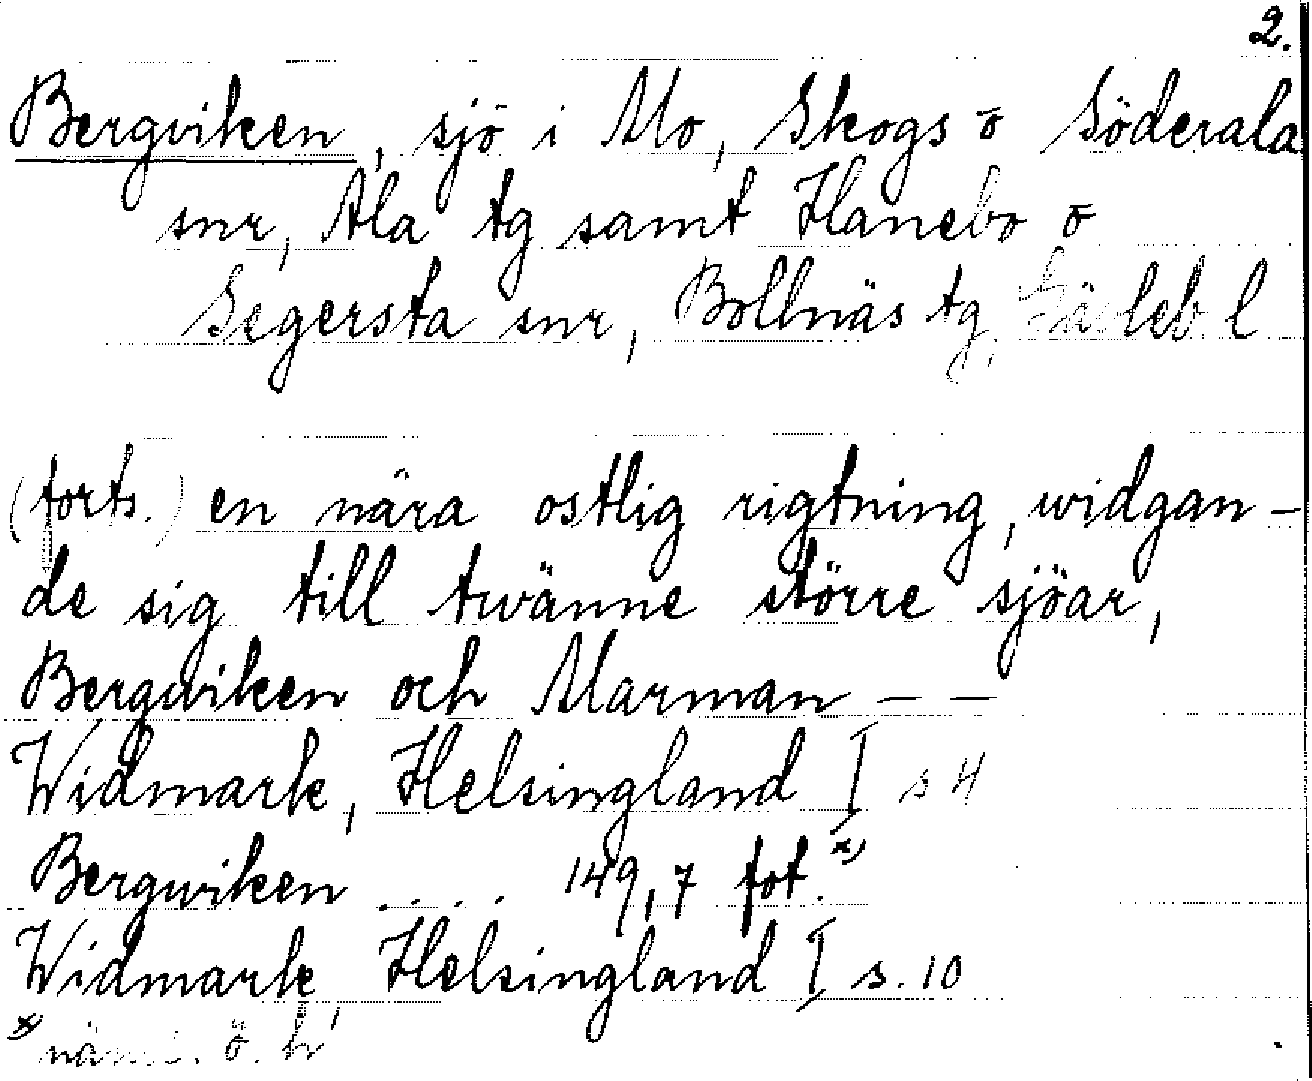 2.
Bergviken, sjö i Mo, Skogs o Söderala
snr, Ala tg samt Hanebo o
Segersta snr, Bollnäs tg, Gävleb l
(forts.) en nära ostlig rigtning, widgan-
de sig till twänne större sjöar,
Bergwiken och Marman – –
Widmark, Helsingland I s 4
Bergwiken .... 149,7 fot. x)
Widmark, Helsingland I s. 10
x) näml. ö. h